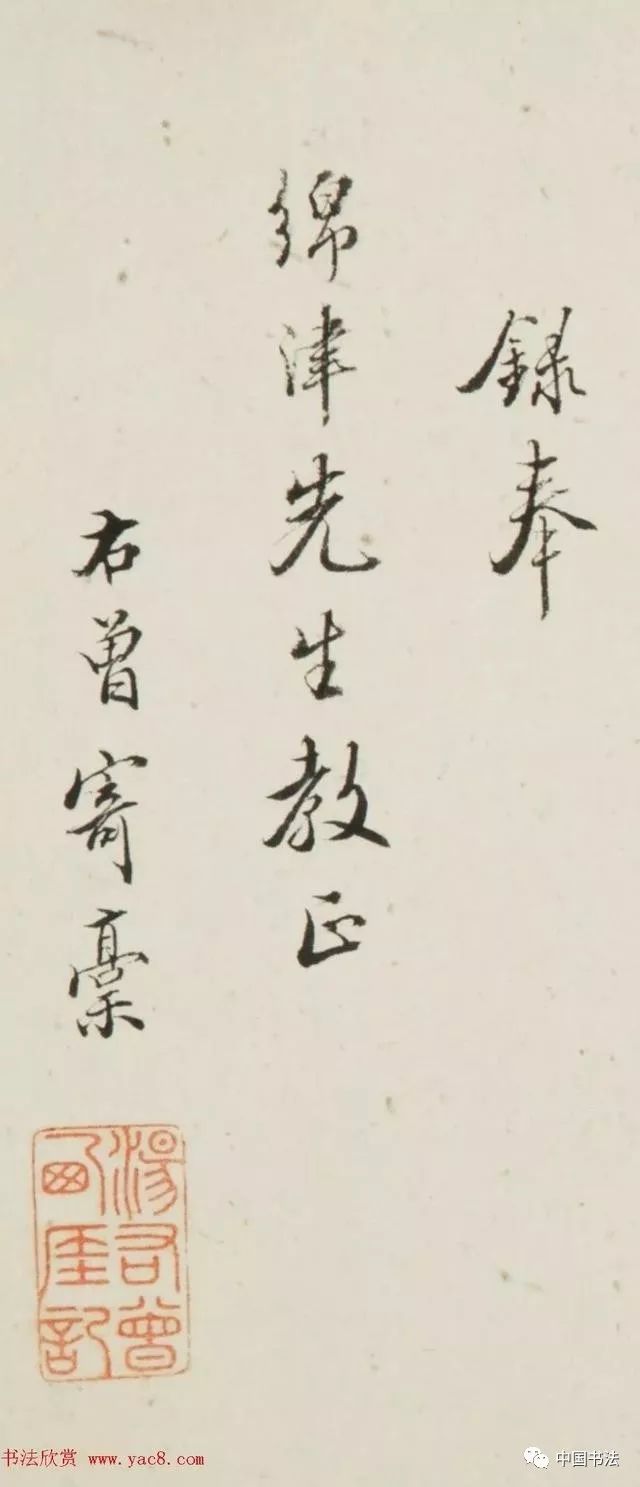 錄奉
綿津先生教正
右曾寄稾
湯右曾
西厓記
书法欣赏 www.yac8.com
中国书法